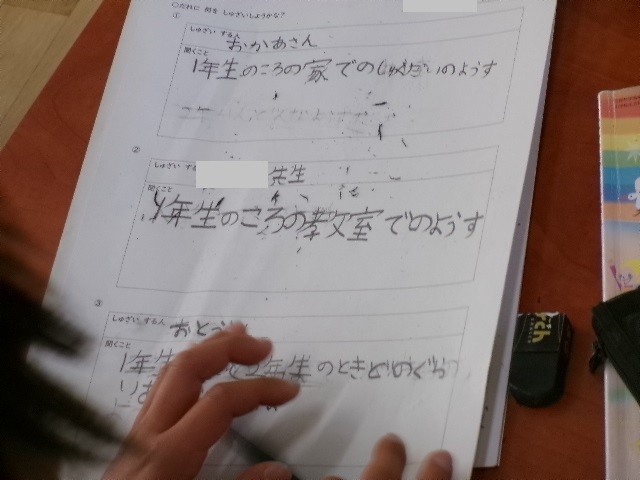 ○だれに 何を しゅざいしようかな?
①
しゅざい する人
おかあさん
聞くこと
1年生のころの家でのしゅくだいのようす
②
しゅざい する
先生
聞くこと
1年生のころの教室でのようす
③
しゅざい する人
おとう
聞くこと
1年生 2年生のときどのぐらい